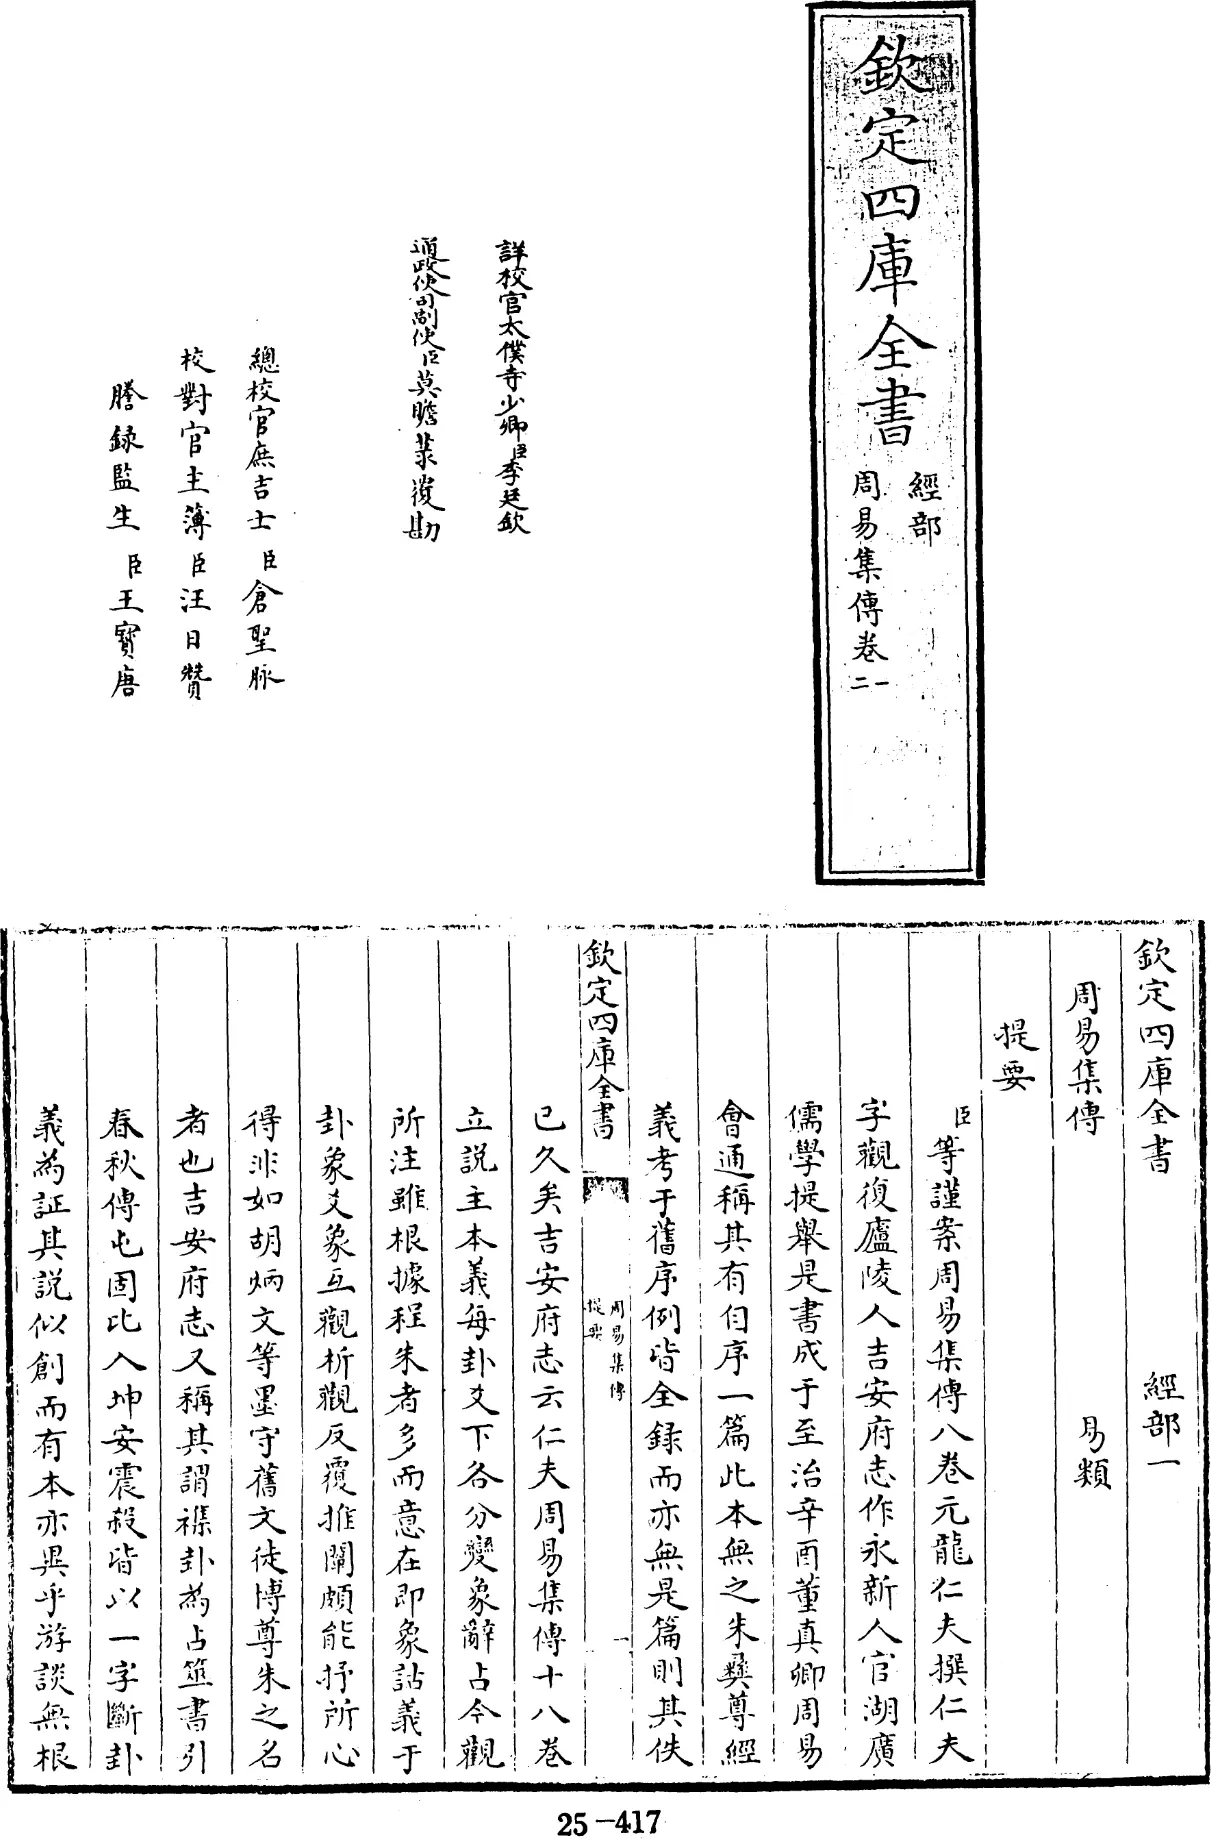 欽定四庫全書
經部
周易集傳卷一二
詳校官太僕寺少卿臣李廷欽
通政使司副使臣莫瞻菉覆勘
總校官庶吉士臣倉聖脉
校對官主簿臣汪日贊
謄録監生臣王寳唐
欽定四庫全書 經部一
周易集傳 易類
提要
臣等謹案周易集傳八卷元龍仁夫撰仁夫
字觀復廬陵人吉安府志作永新人官湖廣
儒學提舉是書成于至治辛酉董真卿周易
會通稱其有自序一篇此本無之朱彞尊經
義考于舊序例皆全録而亦無是篇則其佚
欽定四庫全書
周易集傳
提要
一
已久矣吉安府志云仁夫周易集傳十八卷
立説主本義每卦爻下各分變象辭占今觀
所注雖根據程朱者多而意在即象詁義于
卦象爻象互觀析觀反覆推闡頗能抒所心
得非如胡炳文等墨守舊文徒博尊朱之名
者也吉安府志又稱其謂襍卦為占筮書引
春秋傳屯固比入坤安震殺皆以一字斷卦
義為証其説似創而有本亦異乎游談無根
25-417